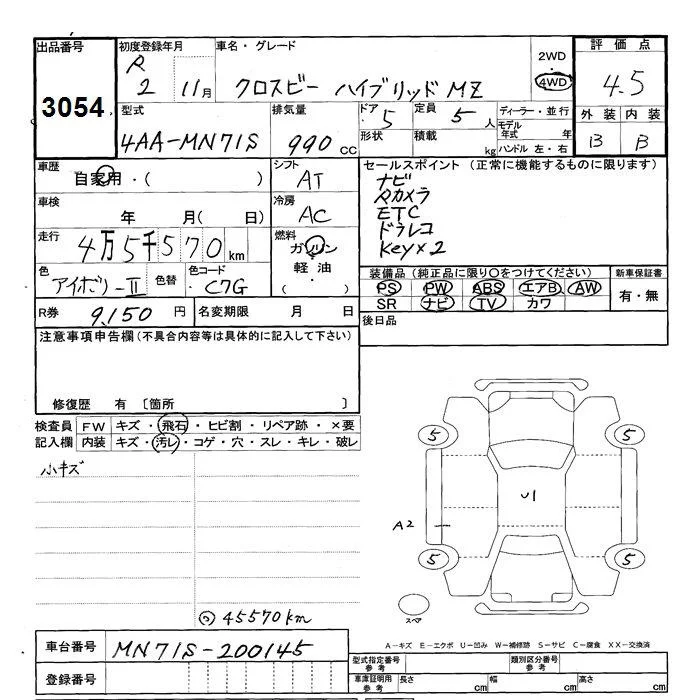 出品番号
3054
初度登録年月
R 2 11月
車名・グレード
クロスビー ハイブリッドMZ
2WD
・
4WD
評価点
4.5
外装 内装
B B
型式
4AA-MN71S
排気量
990 cc
ドア・形状
5
定員
5人
積載
kg
ディーラー・並行
モデル年式 年
ハンドル 左・右
車歴
自家用・( )
シフト
AT
車検
年 月( 日)
冷房
AC
走行
4万5千570km
燃料
ガソリン
軽油
( )
色
アイボリーII
色替
色コード
C7G
R券
9,150円
名変期限 月 日
セールスポイント (正常に機能するものに限ります)
ナビ
Rカメラ
ETC
ドラレコ
Key×2
装備品(純正品に限り○をつけてください)
PS PW ABS エアB AW
SR ナビ TV カワ
新車保証書
有・無
後日品
注意事項申告欄(不具合内容等は具体的に記入して下さい)
修復歴 有 〔箇所 〕
検査員記入欄
FW キズ・飛石・ヒビ割・リペア跡・×要
内装 キズ・汚レ・コゲ・穴・スレ・キレ・破レ
小キズ
45570km
5 5
U1
A2
5 5
スペア
車台番号
MN71S-200145
登録番号
A-キズ E-エクボ U-凹み W-補修跡 S-サビ C-腐食 XX-交換済
型式指定番号 参考
類別区分番号 参考
車庫証明用 参考
長さ cm
幅 cm
高さ cm